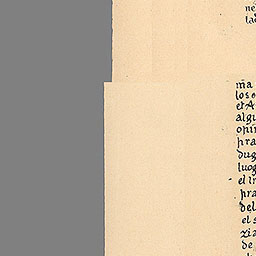 ne
la
ma
los e
et A
algu
opin
pra
dug
luog
el Ir
pra
del
el s
zia
de